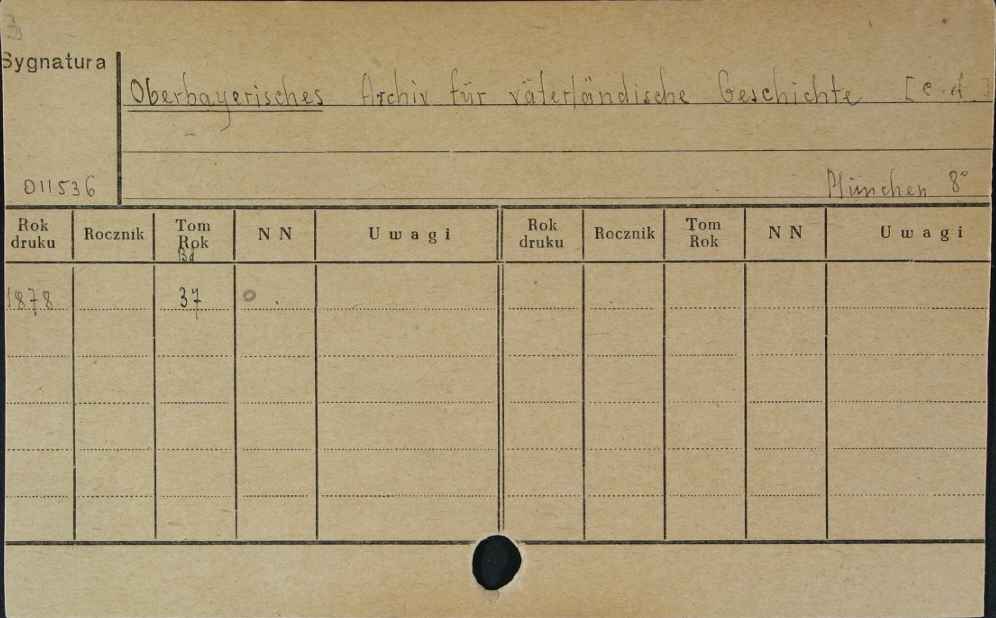 Sygnatura
Oberbayerisches Archiv für väterländische Geschichte [c.d.]
011536
München 8°
Rok druku Rocznik Tom Rok Bd N N Uwagi Rok druku Rocznik Tom Rok N N Uwagi
1878 37